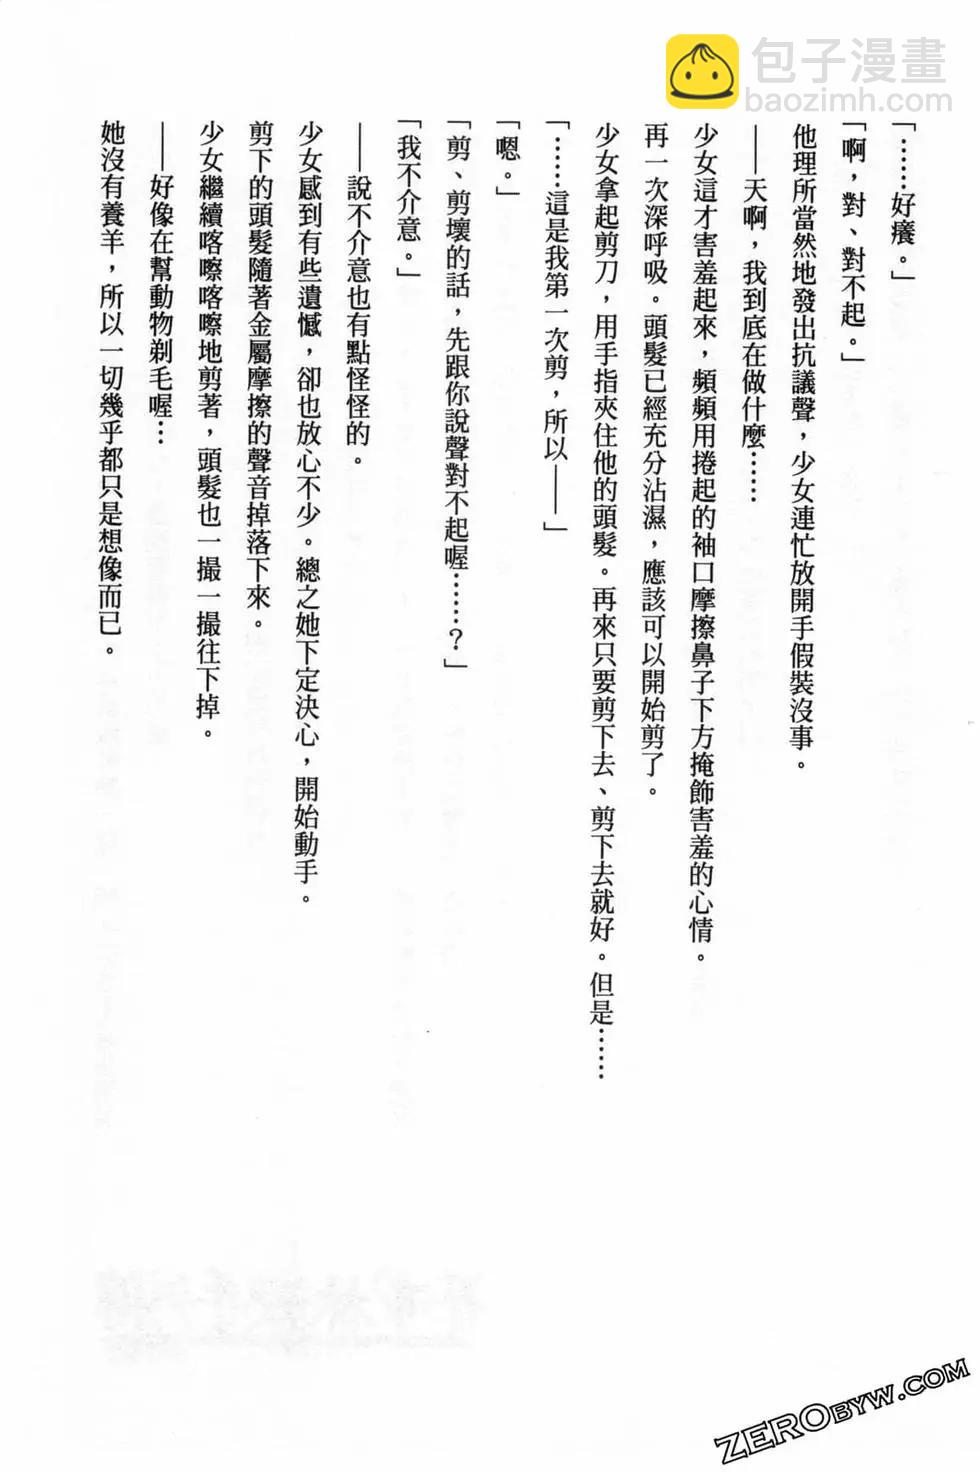 包子漫畫
baozimh.com
「……好癢。」
「啊，對、對不起。」
他理所當然地發出抗議聲，少女連忙放開手假裝沒事。
——天啊，我到底在做什麼……
少女這才害羞起來，頻頻用捲起的袖口摩擦鼻子下方掩飾害羞的心情。
再一次深呼吸。頭髮已經充分沾濕，應該可以開始剪了。
少女拿起剪刀，用手指夾住他的頭髮。再來只要剪下去、剪下去就好。但是……
「……這是我第一次剪，所以——」
「嗯。」
「剪、剪壞的話，先跟你說聲對不起喔……？」
「我不介意。」
——說不介意也有點怪怪的。
少女感到有些遺憾，卻也放心不少。總之她下定決心，開始動手。
剪下的頭髮隨著金屬摩擦的聲音掉落下來。
少女繼續喀嚓喀嚓地剪著，頭髮也一撮一撮往下掉。
——好像在幫動物剃毛喔…
她沒有養羊，所以一切幾乎都只是想像而已。
ZEROBYW.COM